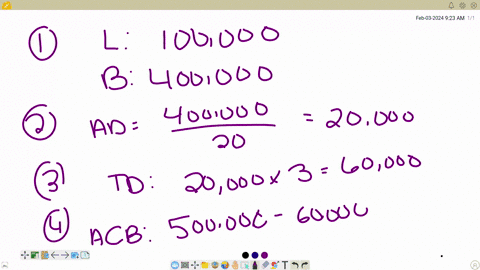 Feb-03-2024 9:23 AM 1/1
① L: 100,000
B: 400,000
② AD = 400,000 / 20 = 20,000
③ TD: 20,000 × 3 = 60,000
④ ACB: 500,000 - 60000